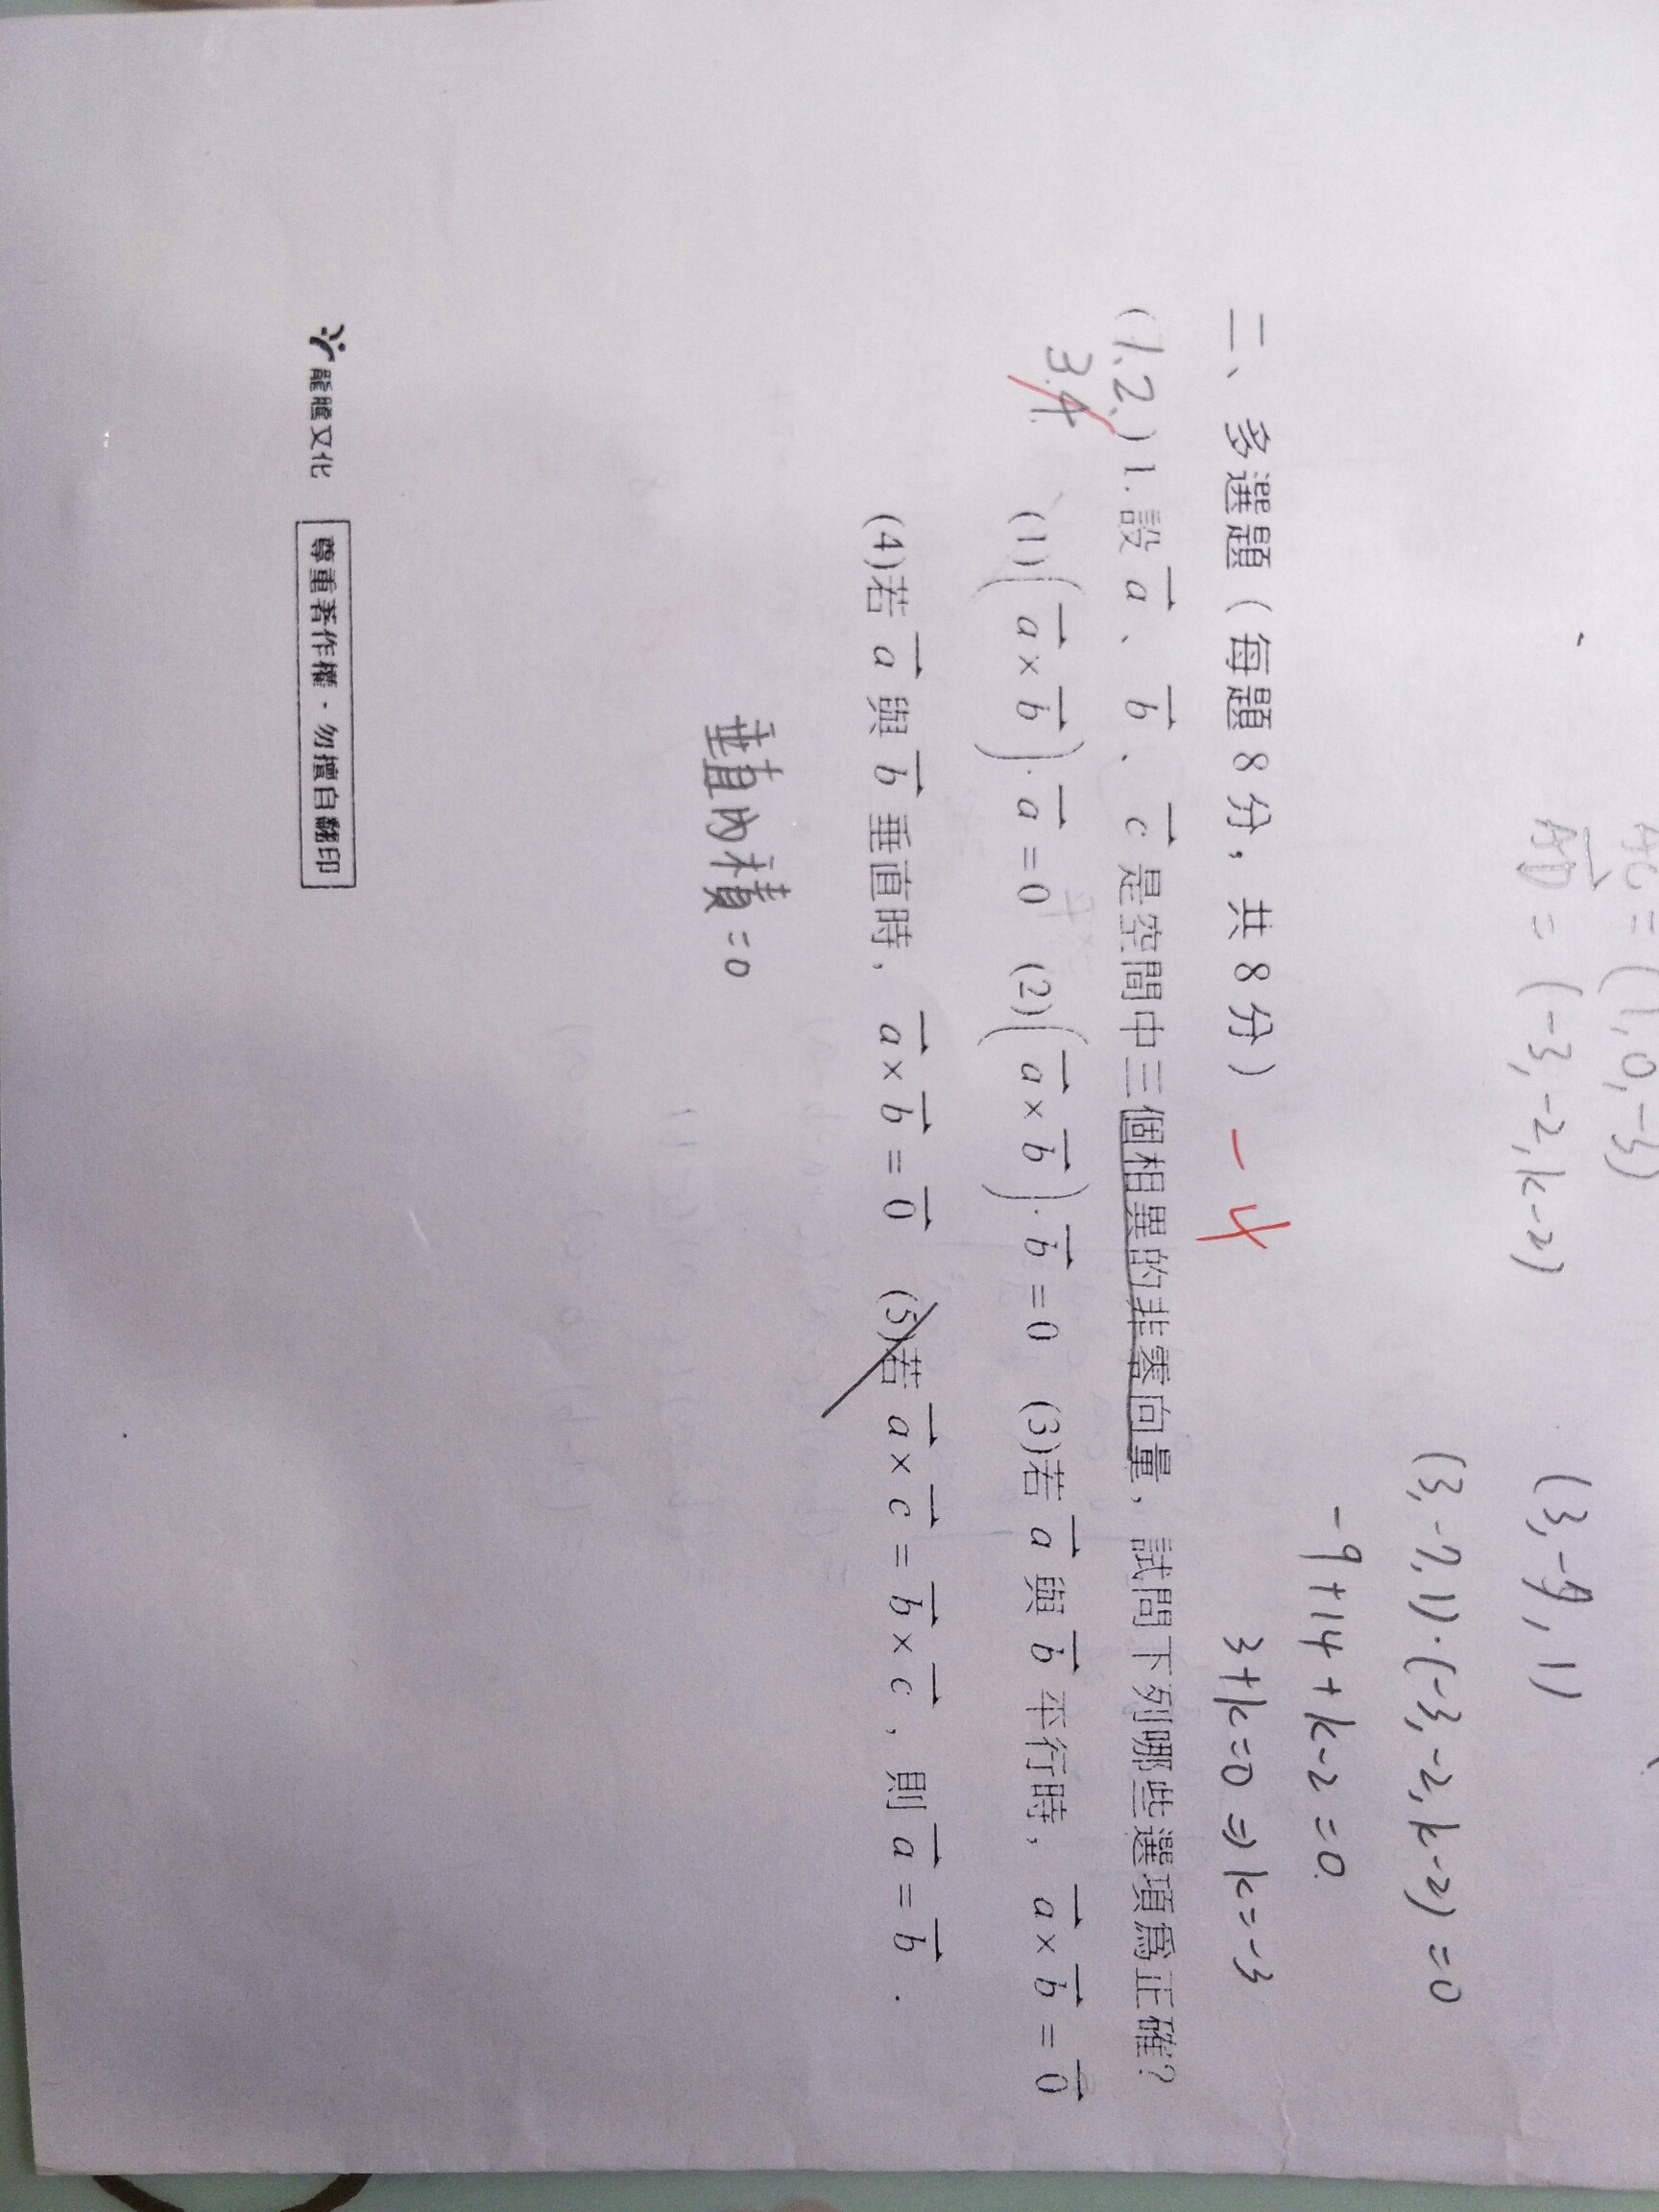 AC = (1, 0, -3)
AD = (-3, -2, k-2)
(3, -7, 1)
(3, -7, 1)·(-3, -2, k-2) = 0
-9+14+k-2=0
3+k=0 ⇒ k=-3
二、多選題（每題 8 分，共 8 分） -4
(1.2.) 1. 設 a、b、c 是空間中三個相異的非零向量，試問下列哪些選項為正確？
3.4.
(1)(a×b)·a=0 (2)(a×b)·b=0 (3)若 a 與 b 平行時，a×b=0
(4)若 a 與 b 垂直時，a×b=0 (5)若 a×c=b×c，則 a=b．
垂直內積=0
龍騰文化 尊重著作權‧勿擅自翻印